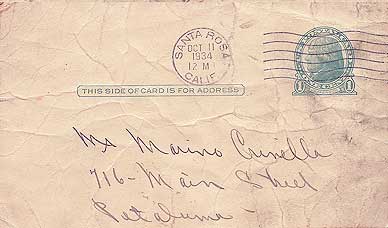 SANTA ROSA
OCT 11
1934
12 M
CALIF.
1 1
THIS SIDE OF CARD IS FOR ADDRESS
Mr Marino
716 - Main Street
Petaluma -